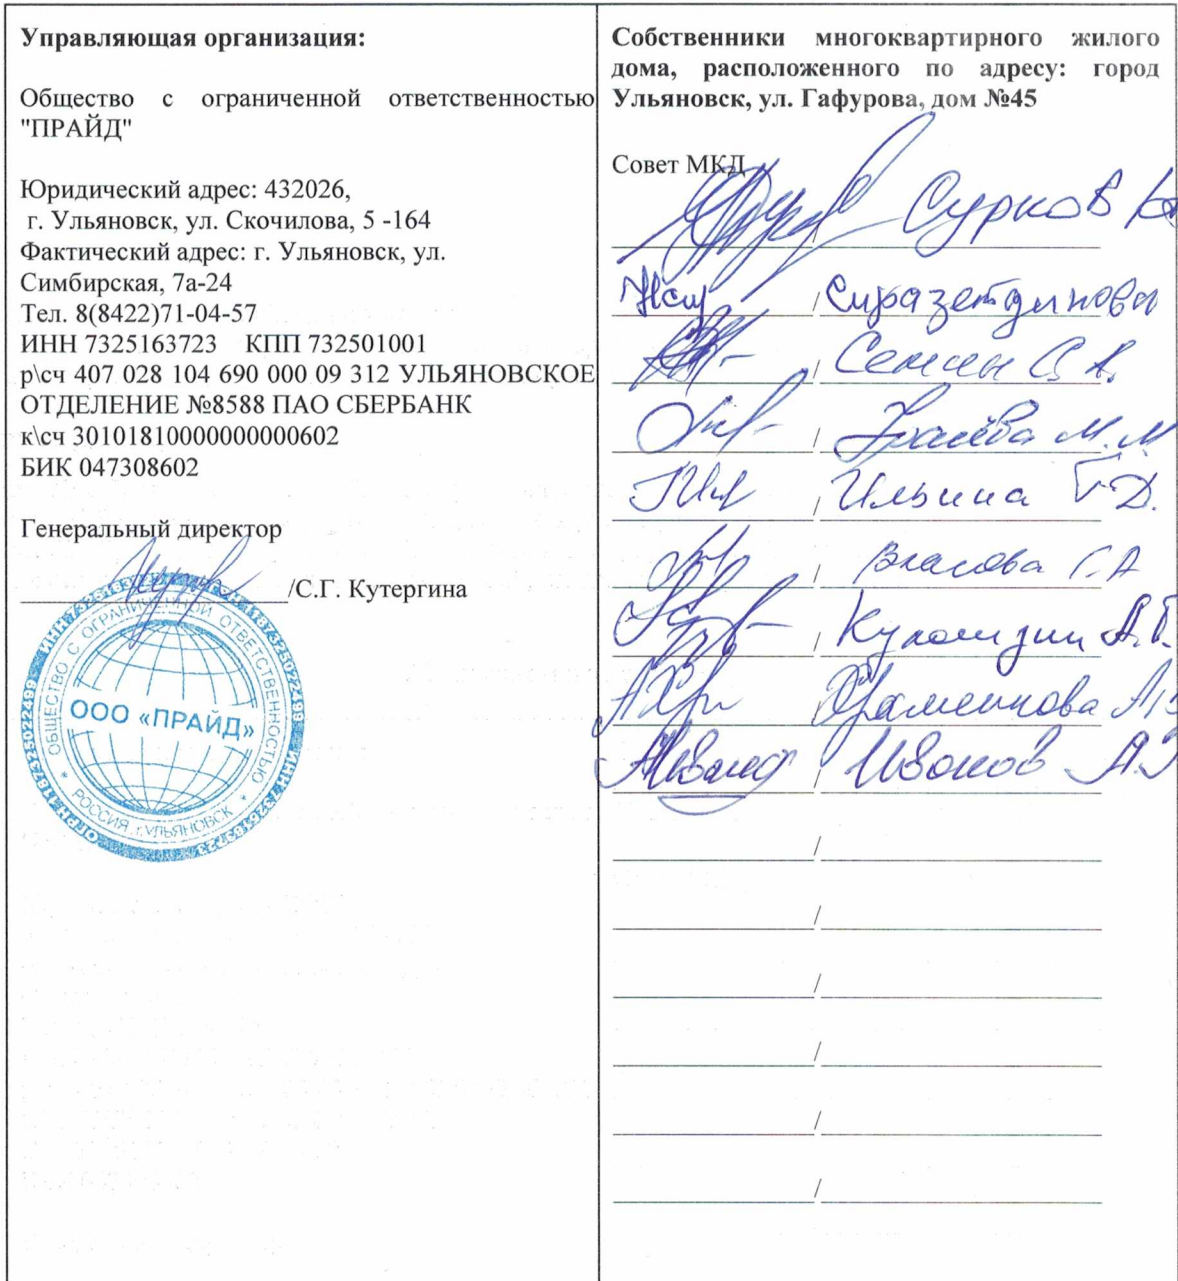 Управляющая организация:
Общество с ограниченной ответственностью
"ПРАЙД"
Юридический адрес: 432026,
г. Ульяновск, ул. Скочилова, 5 -164
Фактический адрес: г. Ульяновск, ул.
Симбирская, 7а-24
Тел. 8(8422)71-04-57
ИНН 7325163723 КПП 732501001
р\сч 407 028 104 690 000 09 312 УЛЬЯНОВСКОЕ
ОТДЕЛЕНИЕ №8588 ПАО СБЕРБАНК
к\сч 30101810000000000602
БИК 047308602
Генеральный директор
/С.Г. Кутергина
ОБЩЕСТВО С ОГРАНИЧЕННОЙ ОТВЕТСТВЕННОСТЬЮ
ООО «ПРАЙД»
РОССИЯ г.УЛЬЯНОВСК
Собственники многоквартирного жилого
дома, расположенного по адресу: город
Ульяновск, ул. Гафурова, дом №45
Совет МКД
Сурков
/ Сиразетдинова
/
/ М.М
/ Ильина Г.Д.
/ Власова С.А
/ А.Б.
Храменкова
/ Иванов
/
/
/
/
/
/